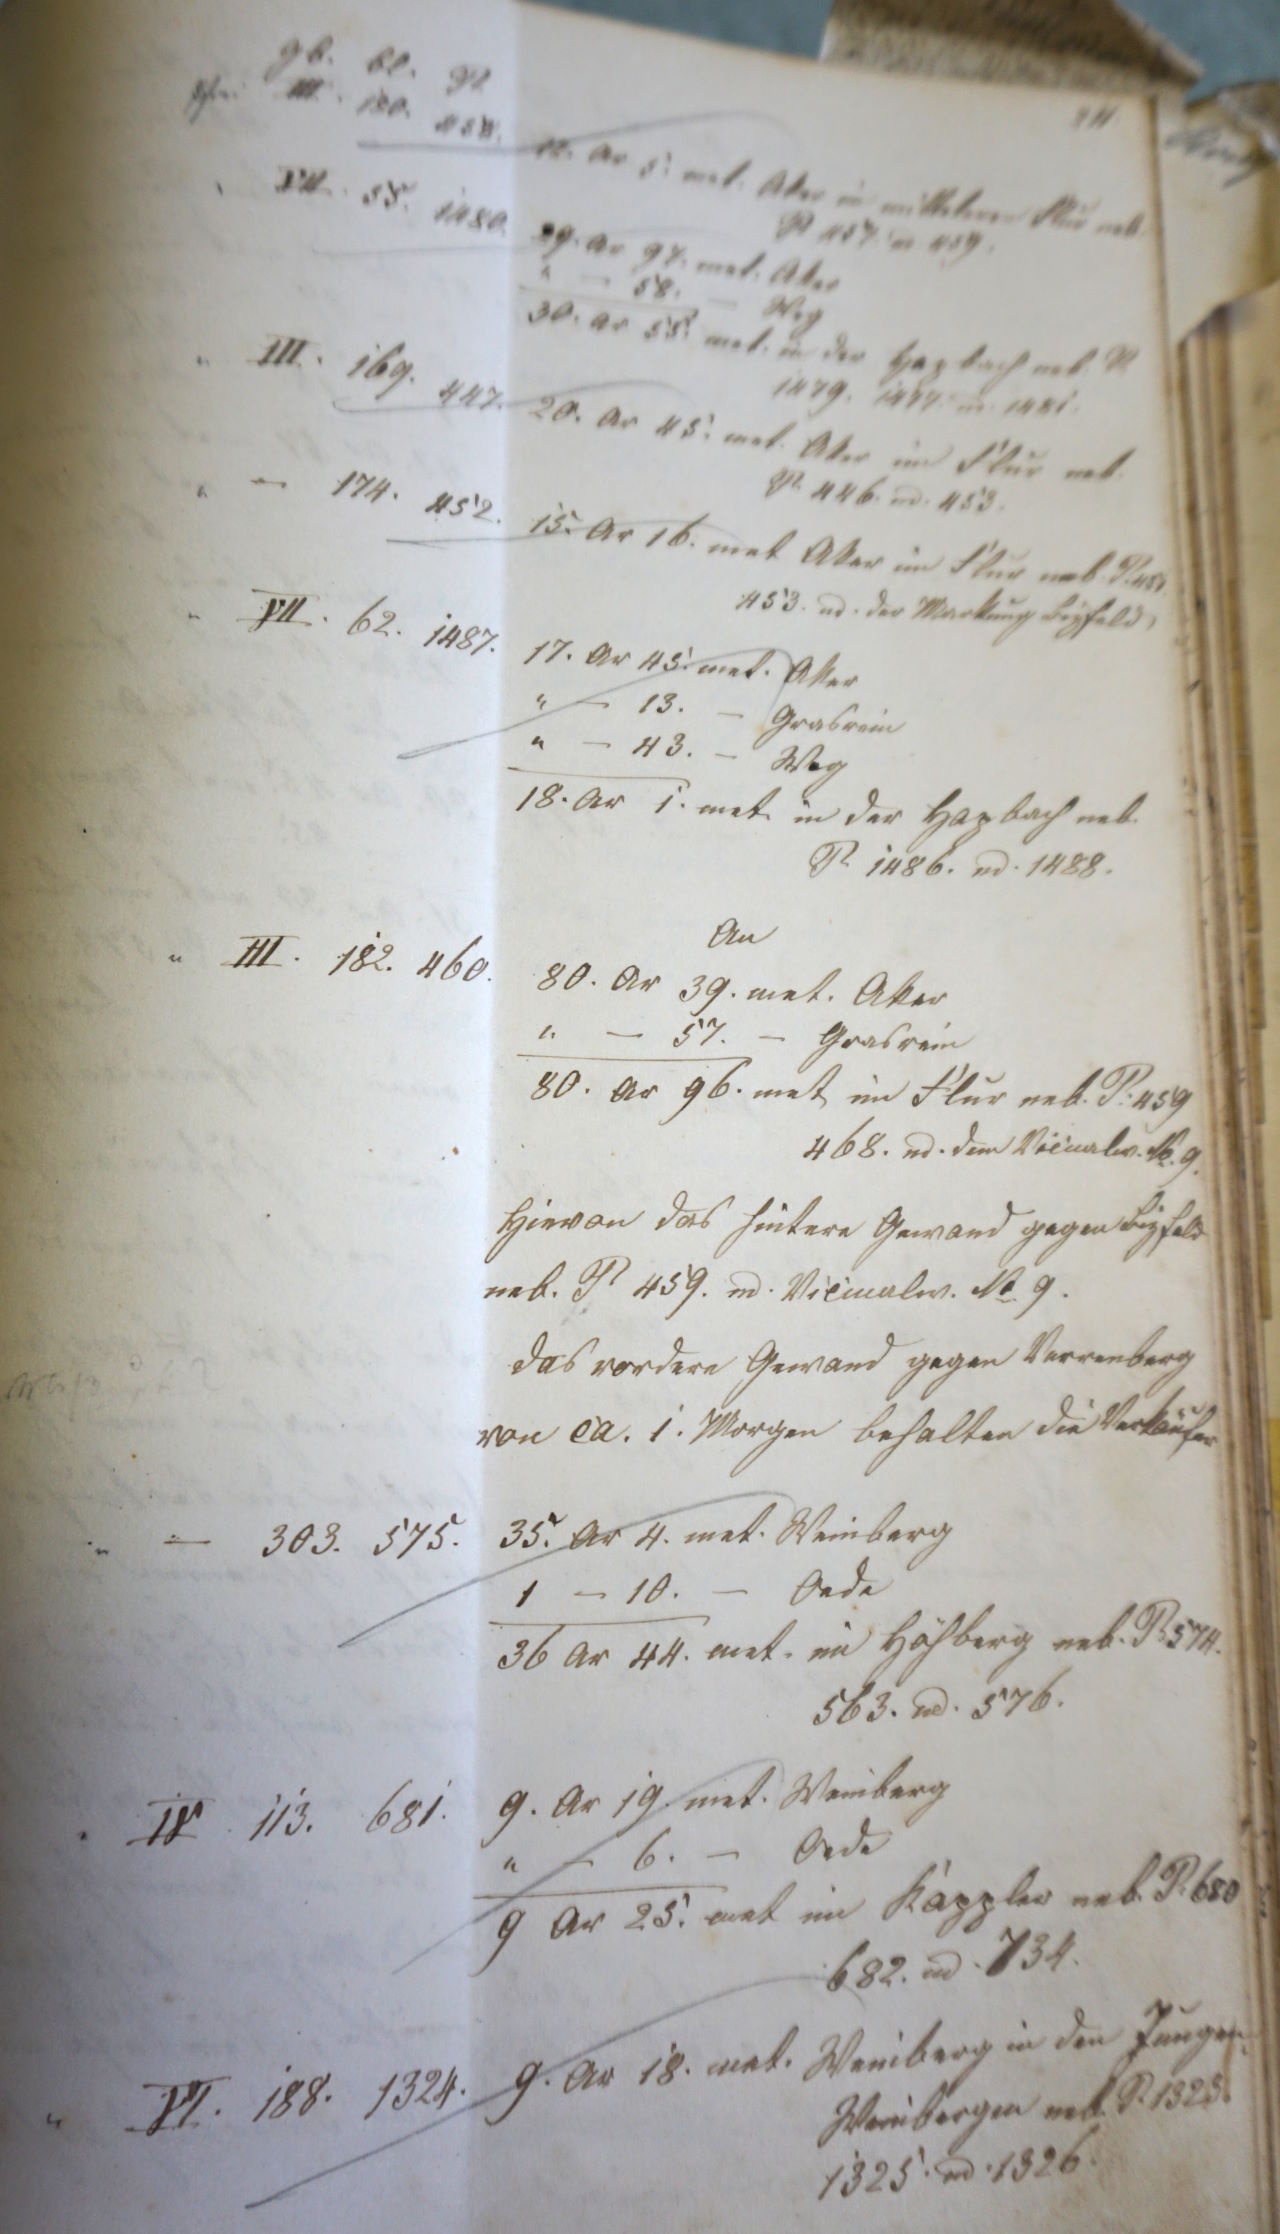 gb. bl. P.
III. 180. 458.
12. Ar 5. met. Aker in mittleren Flur neb.
P. 457. u. 459.
VII. 55. 1480.
29. Ar 97. met. Aker
" — 58. — Weg
30. Ar 55. met. in der Hazbach neb. P.
1479. 1477. u. 1481.
" III. 169. 447. 20. Ar 45. met. Aker im Flur neb.
P. 446. ud. 453.
" — 174. 452. 15. Ar 16. met Aker im Flur neb. P. 451
453. ud. der Markung Bizfeld,
" VII. 62. 1487. 17. Ar 45. met. Aker
" — 13. — Grasrain
" — 43. — Weg
18. Ar 1. met. in der Hazbach neb.
P. 1486. ud. 1488.
An
" III. 182. 460. 80. Ar 39. met. Aker
" — 57. — Grasrain
80. Ar 96. met im Flur neb. P. 459
468. ud. dem Vicinalw. No. 9.
Hievon das hintere Gewand gegen Bizfeld
neb. P. 459. ud. Vicinalw. No 9.
das vordere Gewand gegen Verrenberg
von ca. 1. Morgen behalten die Verkäufer
" — 303. 575. 35. Ar 4. met. Weinberg
1 — 10. — Oede
36 Ar 44. met. im Höhberg neb. P. 574.
563. ud. 576.
" IV 113. 681. 9. Ar 19. met. Weinberg
" — 6. — Oede
9 Ar 25. met im Käppler neb. P. 680
682. ud. 734.
" VI. 188. 1324. 9. Ar 18. met. Weinberg in den Jungen
Weinbergen neb. P. 1323.
1325. ud. 1326.